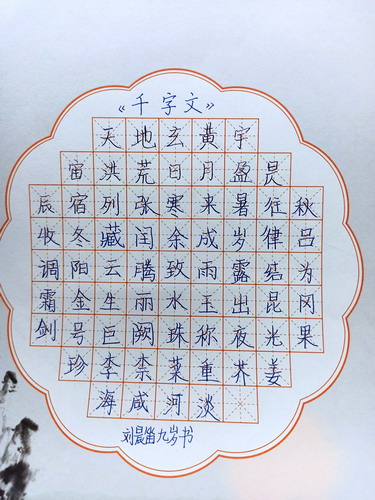 《千字文》
天地玄黄宇
宙洪荒日月盈昃
辰宿列张寒来暑往秋
收冬藏闰余成岁律吕
调阳云腾致雨露结为
霜金生丽水玉出昆冈
剑号巨阙珠称夜光果
珍李柰菜重芥姜
海咸河淡
刘晨笛九岁书